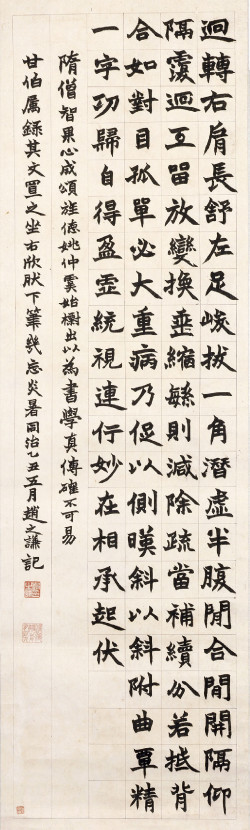 迴轉右肩長舒左足峻拔一角潛虛半腹閒合閒開隔仰
隔覆迴互留放變換垂縮緐則減除疏當補續分若抵背
合如對目孤單必大重病乃促以側暎斜以斜附曲覃精
一字功歸自得盈虛統視連行妙在相承起伏
隋僧智果心成頌旌德姚仲虞始出以為書學真傳確不可易
甘伯屬錄其文置之坐右欣肰下筆幾忘炎暑同治乙丑五月趙之謙記